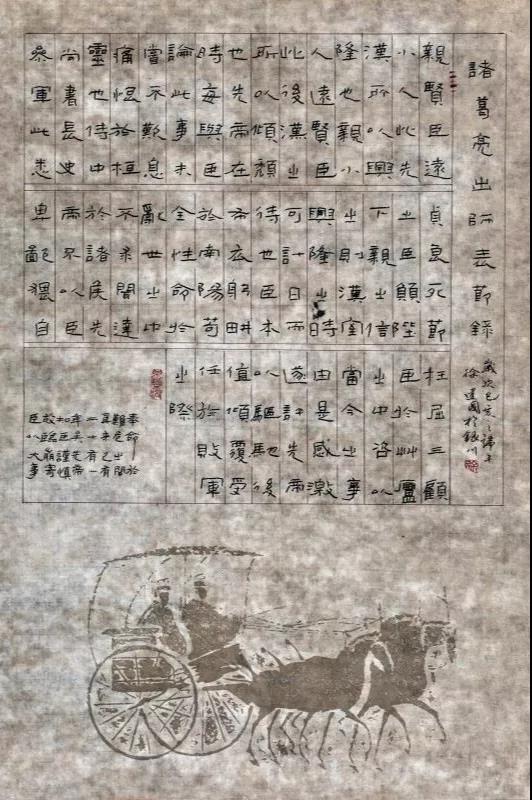 諸葛亮出師表節錄
歲次己亥之端午
徐建國於銀川
親賢臣遠
小人此先
漢所以興
隆也親小
人遠賢臣
此後漢之
所以傾頹
也先帝在
時每與臣
論此事未
嘗不歎息
痛恨於桓
靈也侍中
尚書長史
參軍此悉
貞良死節
之臣願陛
下親之信
之則漢室
興隆之時
可計日而
待也臣本
布衣躬耕
於南陽苟
全性命於
亂世之中
不求聞達
於諸侯先
帝不以臣
卑鄙猥自
枉屈三顧
臣於艸廬
之中咨以
當今之事
由是感激
遂許先帝
以驅馳後
值傾覆受
任於敗軍
之際
奉命出於
難危之間
爾來有
二十有一
年矣先帝
知臣謹慎
故臨崩寄
臣以大事